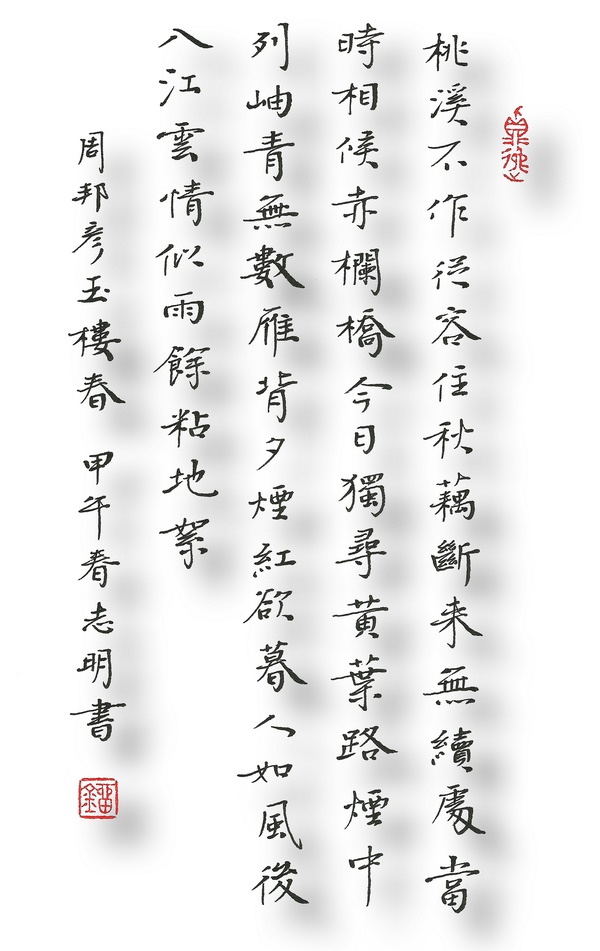 桃溪不作從容住秋藕斷来無續處當
時相候赤欄橋今日獨尋黄葉路煙中
列岫青無數雁背夕煙紅欲暮人如風後
入江雲情似雨餘粘地絮
周邦彥玉樓春 甲午春志明書